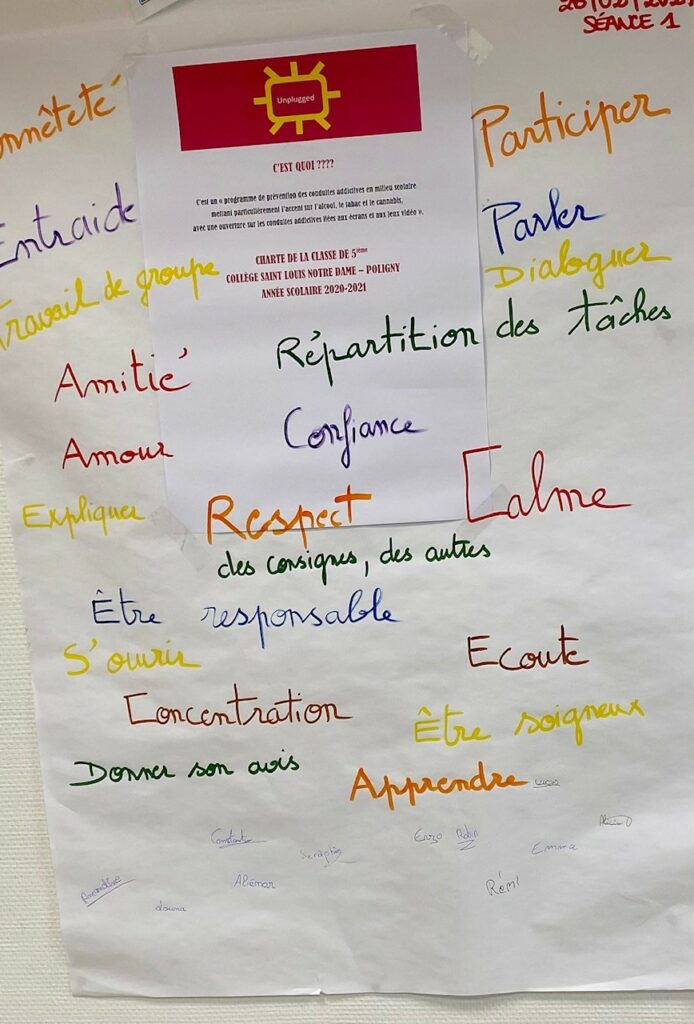 SÉANCE 1
Unplugged
C'EST QUOI ????
C'est un « programme de prévention des conduites addictives en milieu scolaire
mettant particulièrement l'accent sur l'alcool, le tabac et le cannabis,
avec une ouverture sur les conduites addictives liées aux écrans et aux jeux vidéo ».
CHARTE DE LA CLASSE DE 5ième
COLLÈGE SAINT LOUIS NOTRE DAME – POLIGNY
ANNÉE SCOLAIRE 2020-2021
onnêteté
Participer
Entraide
Parler
Travail de groupe
Dialoguer
Répartition des tâches
Amitié
Confiance
Amour
Calme
Expliquer
Respect
des consignes, des autres
Être responsable
S'ouvrir
Ecoute
Concentration
Être soigneux
Donner son avis
Apprendre
Enzo
Robin
Emma
Aliénar
Rémi